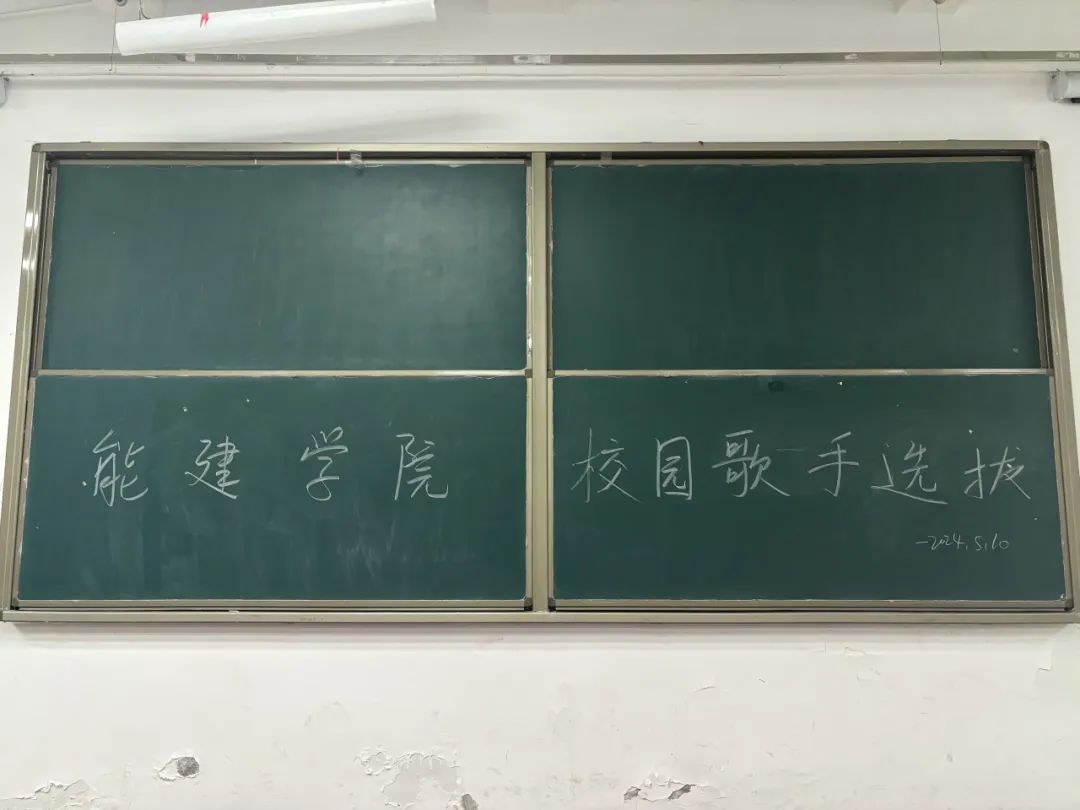 能建学院 校园歌手选拔
-2024.5.10